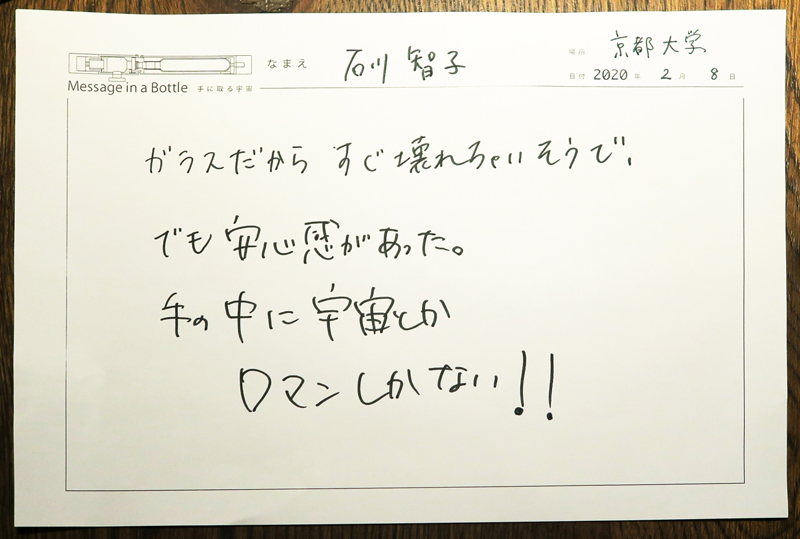 なまえ 石川 智子
場所 京都大学
日付 2020 年 2 月 8 日
Message in a Bottle 手に取る宇宙
ガラスだから すぐ壊れちゃいそうで、
でも安心感があった。
手の中に宇宙とか
ロマンしかない!!